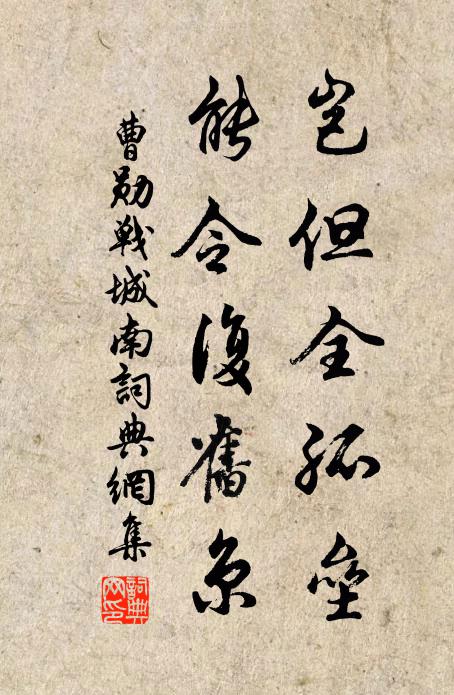 豈但全孤壘
能令復舊京
曹勛戰城南詞典網集
詞典网印